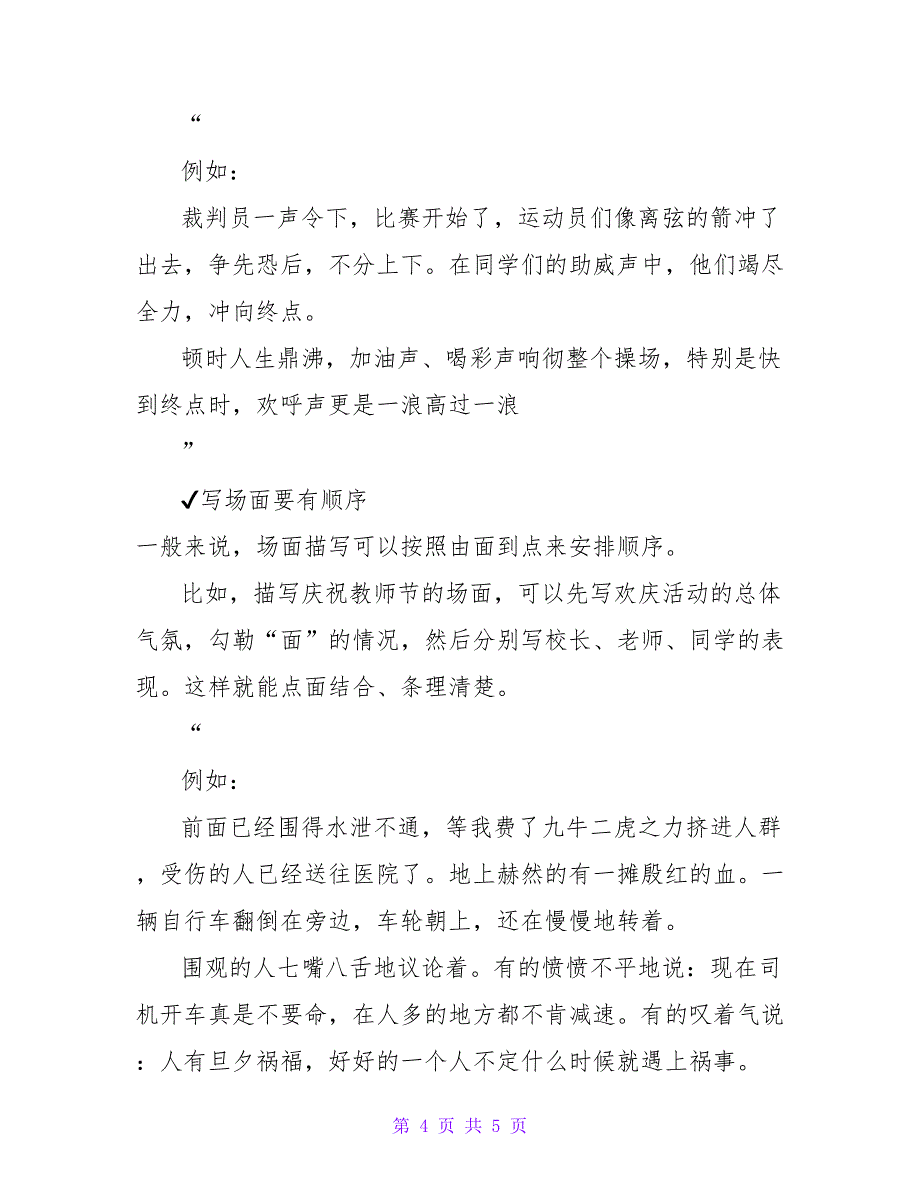 “
例如：
裁判员一声令下，比赛开始了，运动员们像离弦的箭冲了
出去，争先恐后，不分上下。在同学们的助威声中，他们竭尽
全力，冲向终点。
顿时人生鼎沸，加油声、喝彩声响彻整个操场，特别是快
到终点时，欢呼声更是一浪高过一浪
”
✓写场面要有顺序
一般来说，场面描写可以按照由面到点来安排顺序。
比如，描写庆祝教师节的场面，可以先写欢庆活动的总体
气氛，勾勒“面”的情况，然后分别写校长、老师、同学的表
现。这样就能点面结合、条理清楚。
“
例如：
前面已经围得水泄不通，等我费了九牛二虎之力挤进人群
，受伤的人已经送往医院了。地上赫然的有一摊殷红的血。一
辆自行车翻倒在旁边，车轮朝上，还在慢慢地转着。
围观的人七嘴八舌地议论着。有的愤愤不平地说：现在司
机开车真是不要命，在人多的地方都不肯减速。有的叹着气说
：人有旦夕祸福，好好的一个人不定什么时候就遇上祸事。
第 4 页 共 5 页